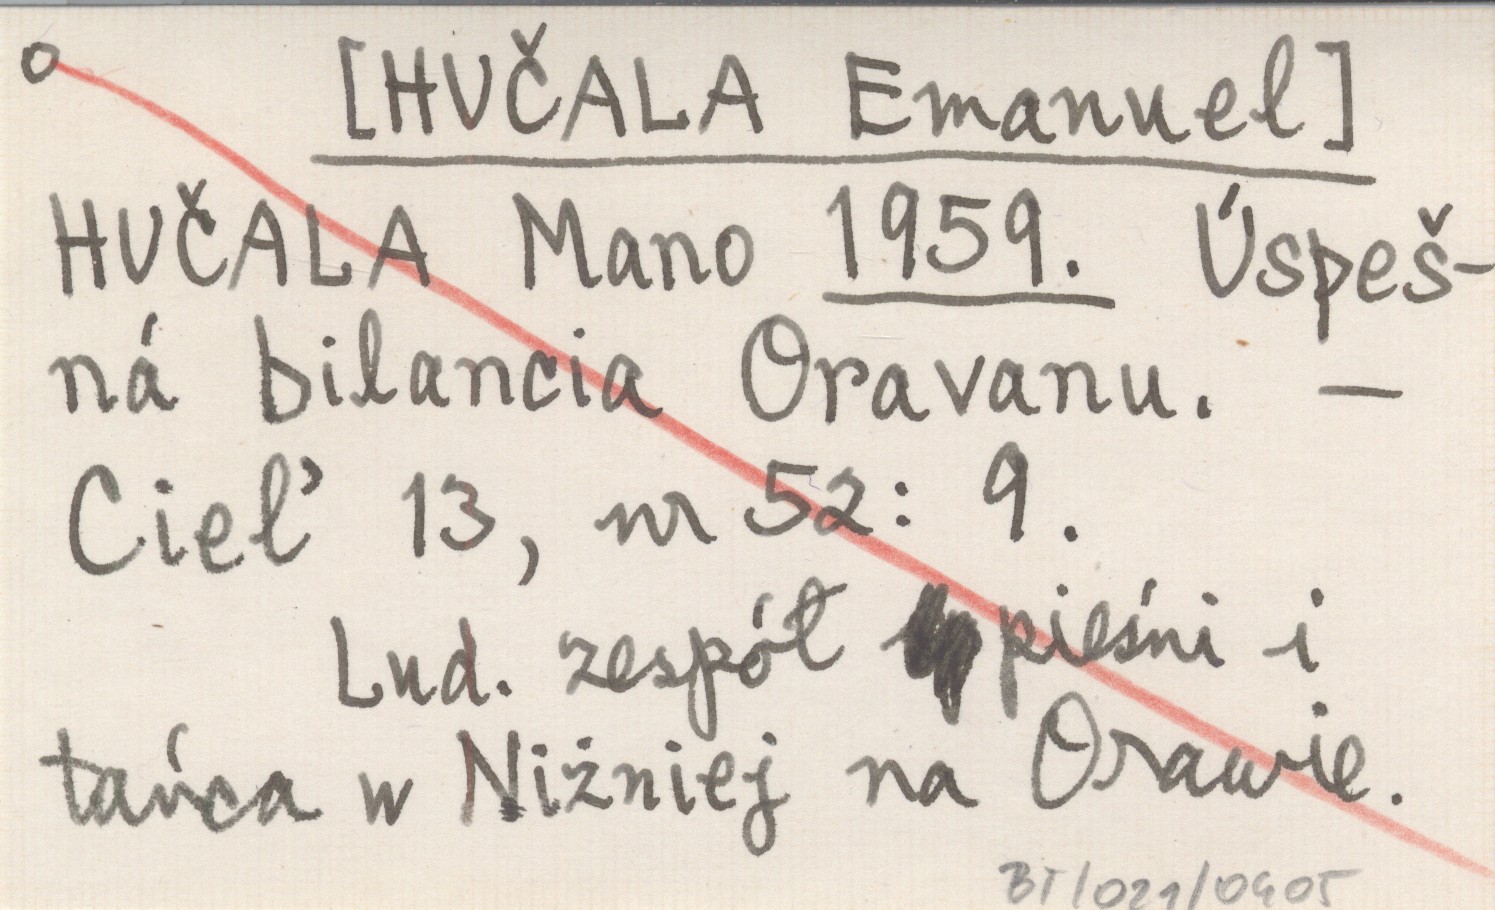 [HUČALA Emanuel]
HUČALA Mano 1959. Úspeš-
ná bilancia Oravanu. —
Cieľ 13, nr 52: 9.
Lud. zespół pieśni i
tańca w Niżniej na Orawie.
BI/021/0905